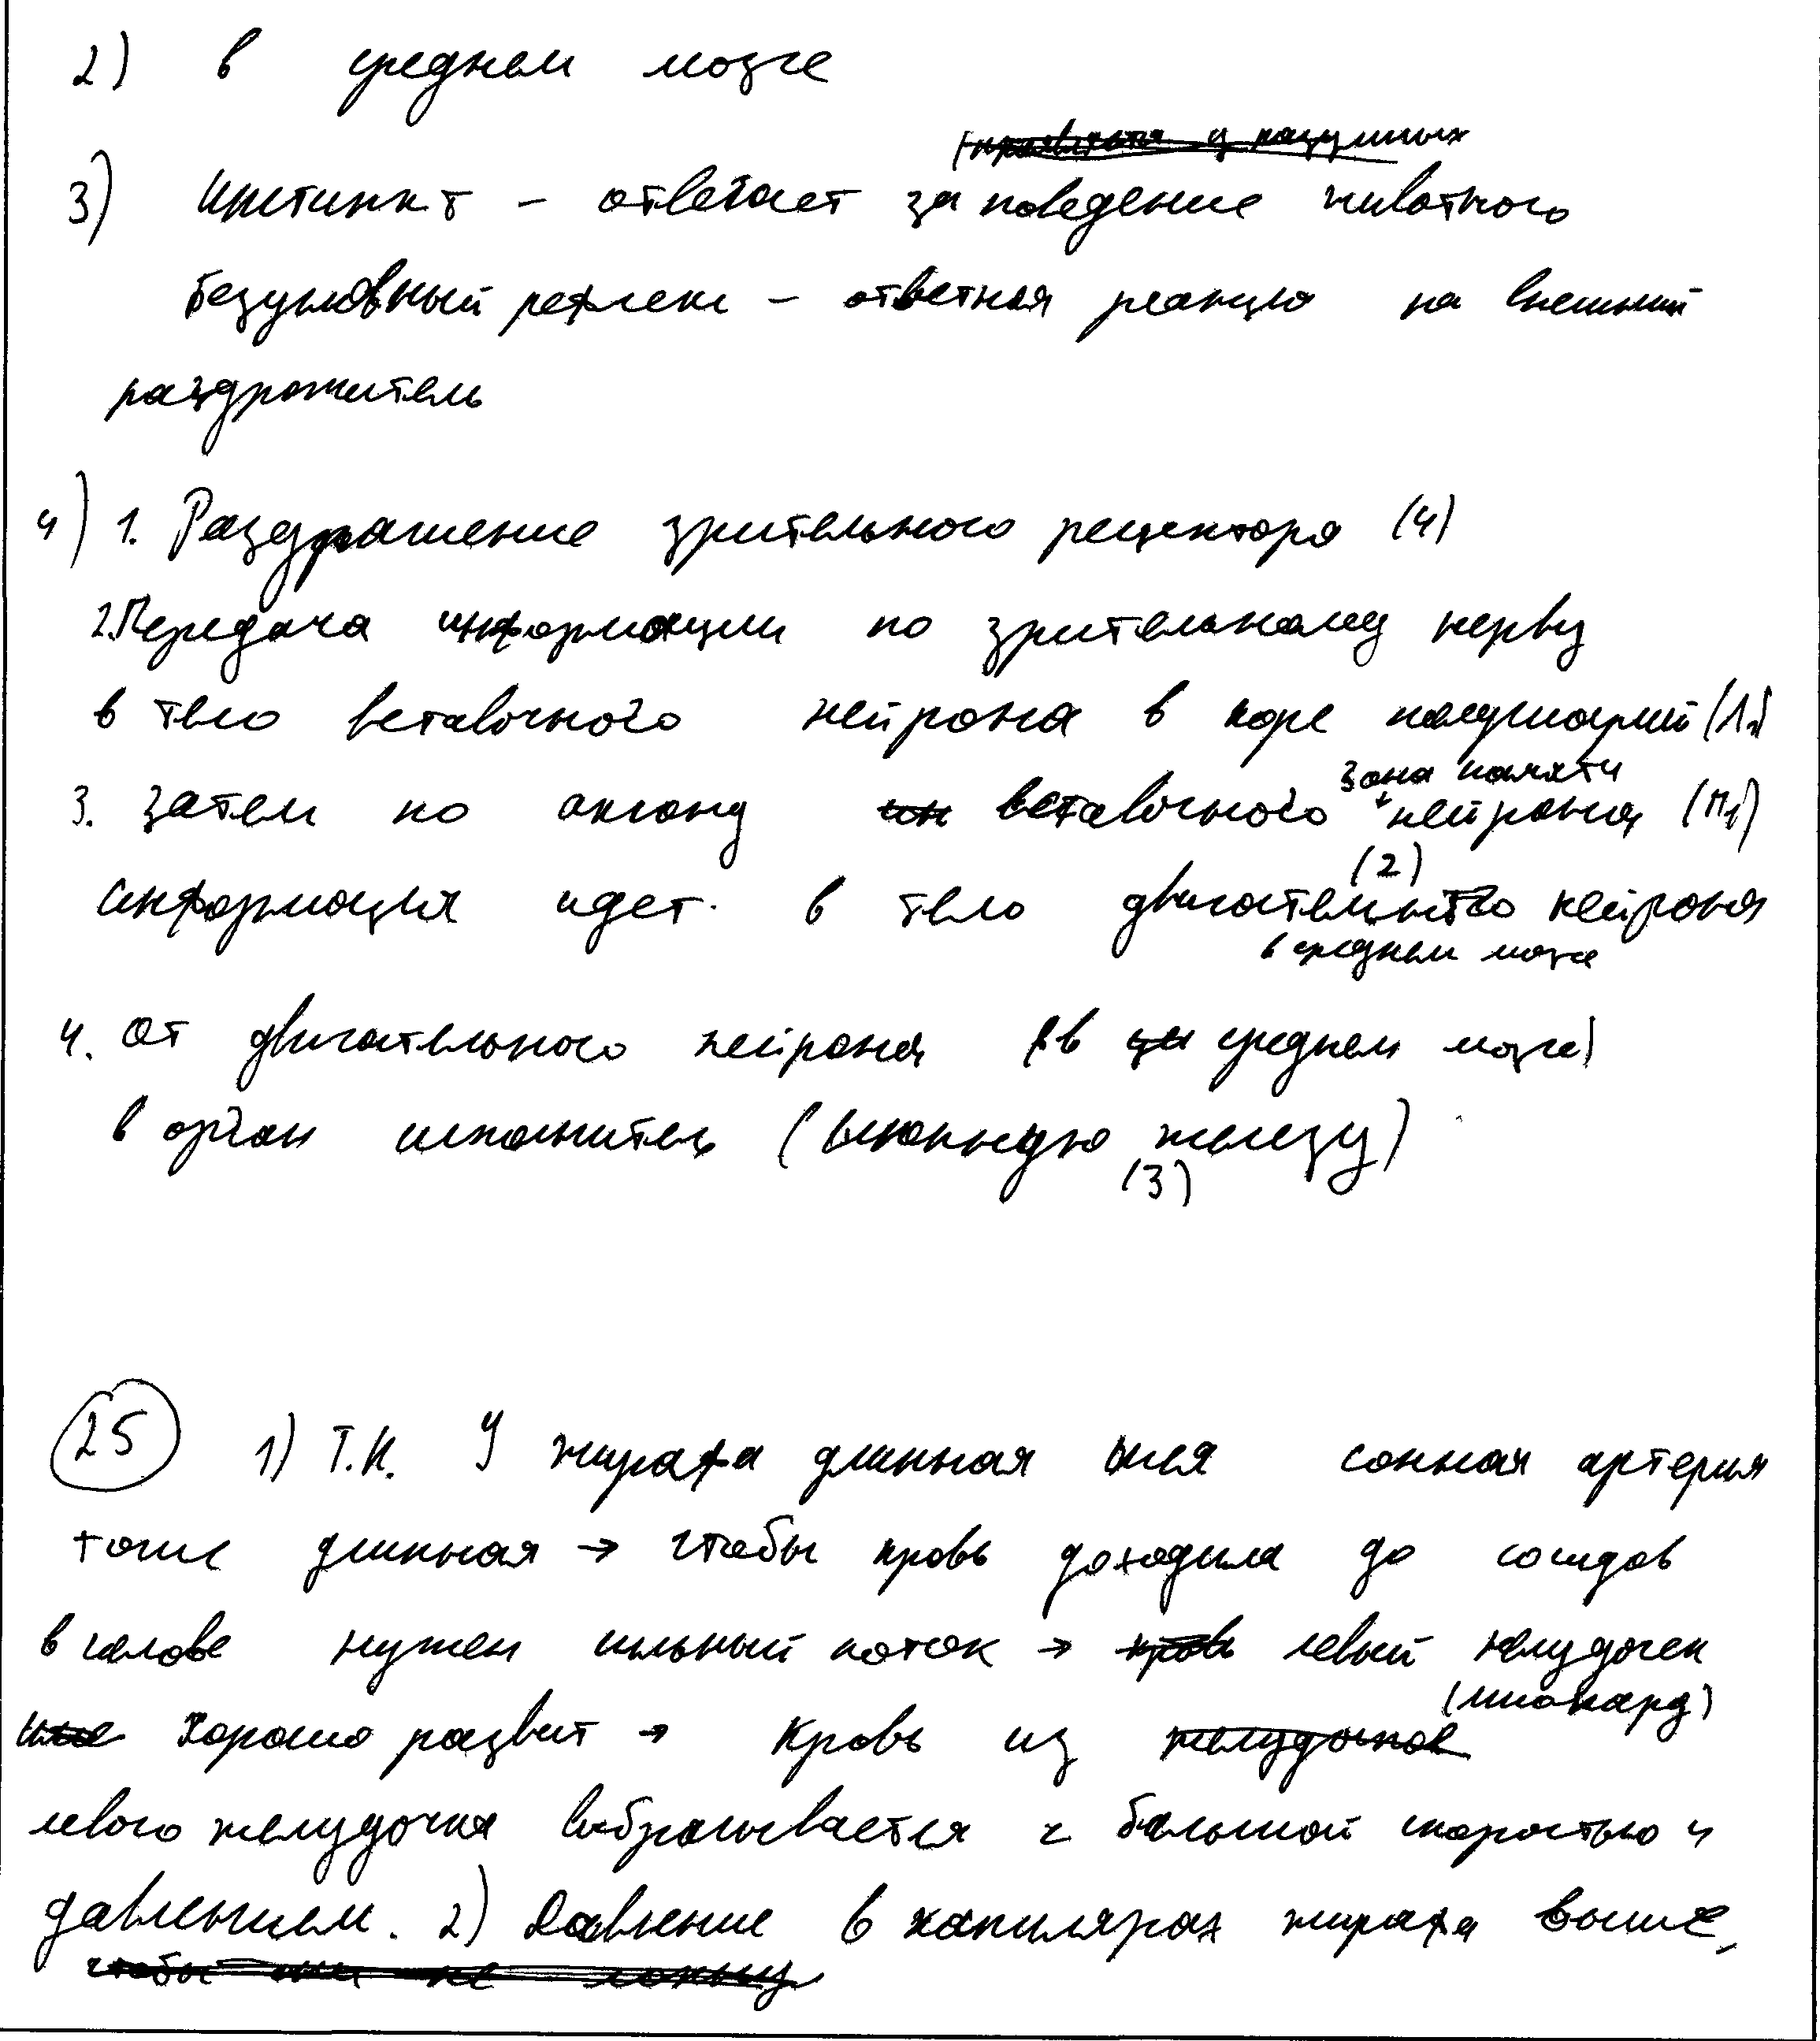 2) в среднем мозге
3) Инстинкт – отвечает за поведение животного
безусловный рефлекс – ответная реакция на внешний
раздражитель
4) 1. Раздражение зрительного рецептора (4)
2. Передача информации по зрительному нерву
в тело вставочного нейрона в коре полушарий
зона памяти
3. Затем по аксону вставочного нейрона (П1)
(2)
информация идет в тело двигательного нейрона
в среднем мозге
4. От двигательного нейрона (в среднем мозге)
в орган исполнитель (слюнную железу)
(3)
25 1) Т.К. У жирафа длинная шея сонная артерия
тоже длинная → чтобы кровь доходила до сосудов
в голове нужен сильный поток → левый желудочек
(миокард)
хорошо развит → кровь из
левого желудочка выбрасывается с большой скоростью и
давлением. 2) Давление в капилярах жирафа выше,